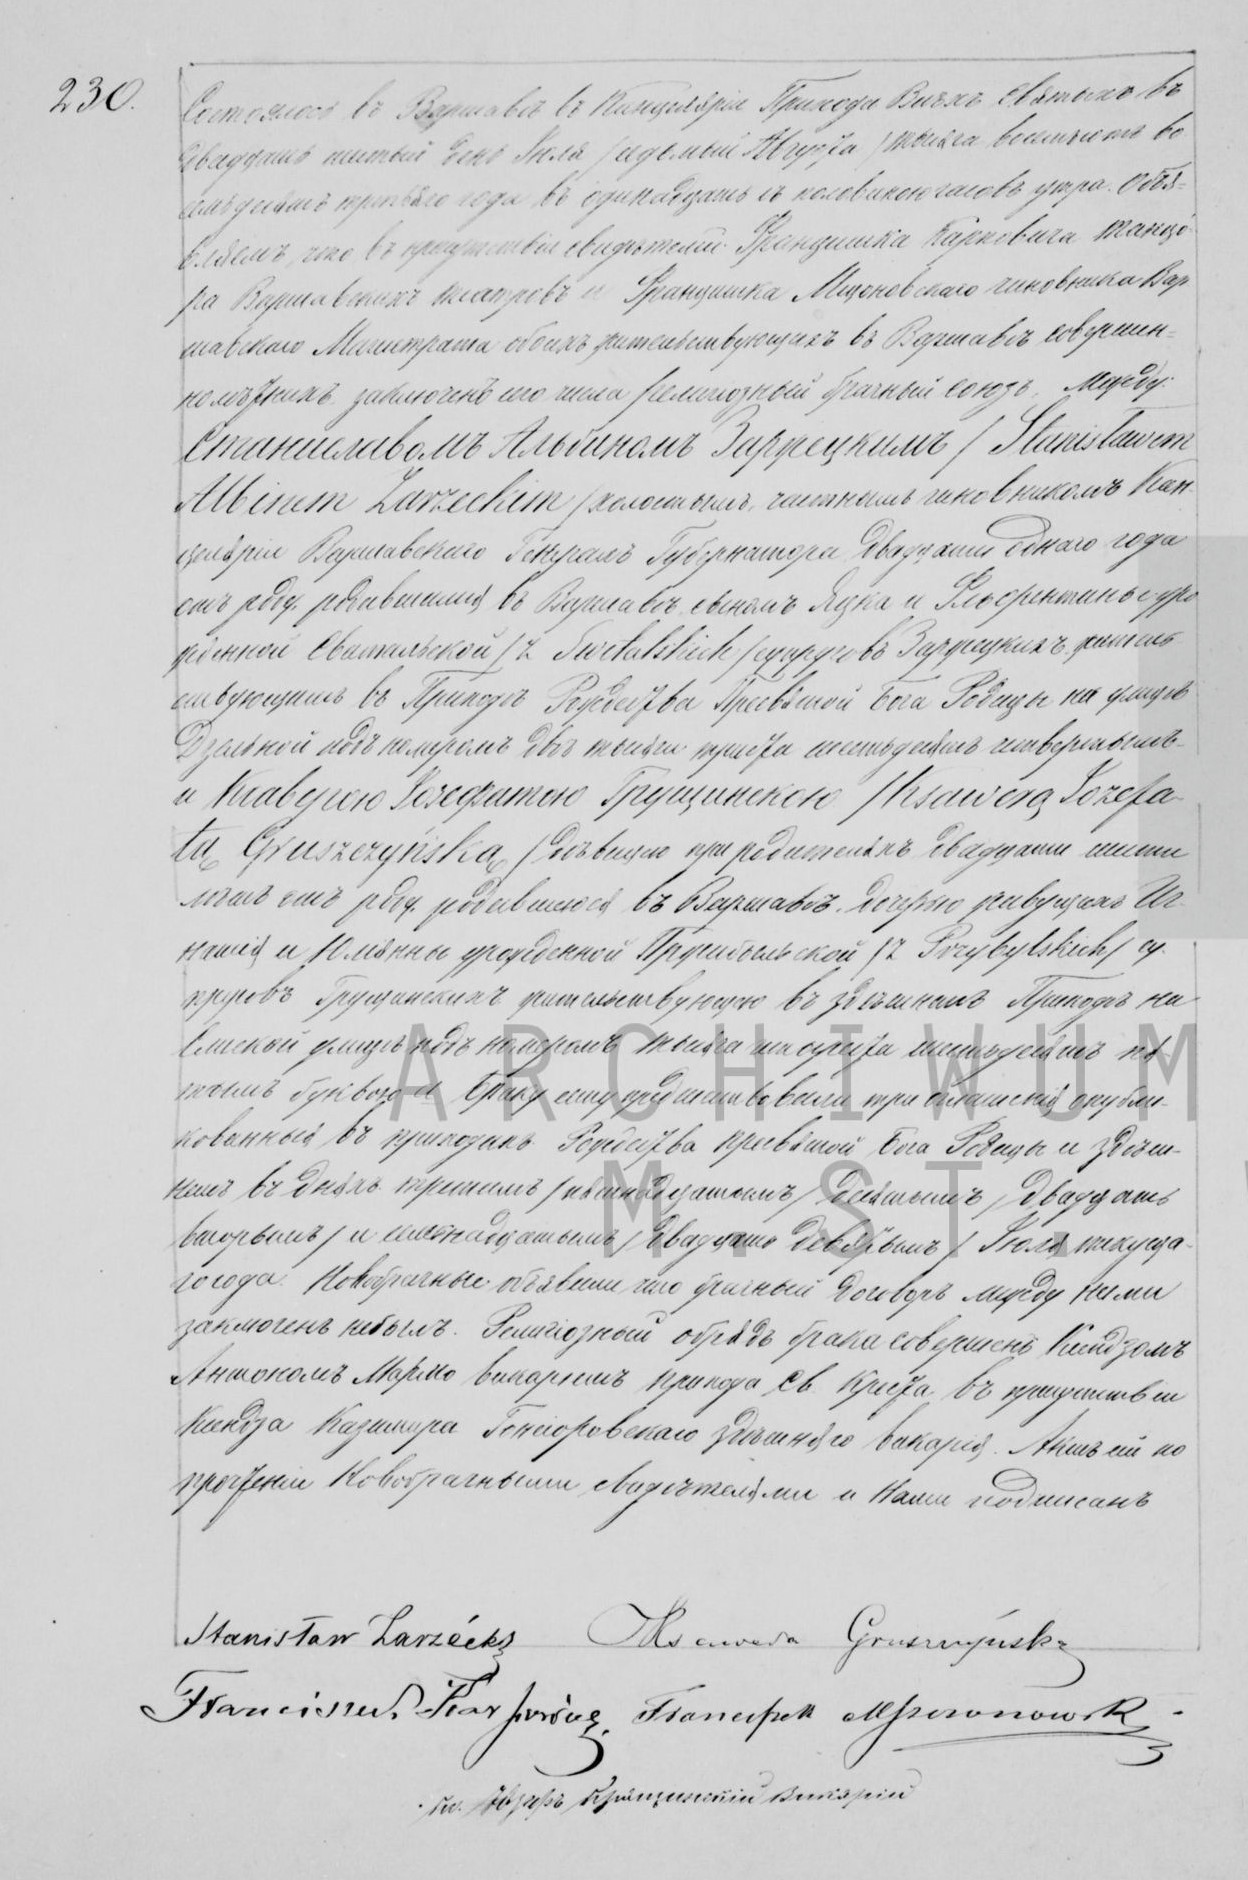 230.
Состоялось въ Варшавѣ въ Канцеляріи Прихода Всѣхъ Святыхъ въ
двадцать шестый день Іюля /седьмый Августа/ тысяча восемьсотъ во
семьдесятъ третьяго года въ одинадцать съ половиною часовъ утра. Объя=
вляемъ, что въ присутствіи свидѣтелей Францишка Карповича танцо
ра Варшавскихъ театровъ и Францишка Мщоновскаго чиновника Вар
шавскаго Магистрата обоихъ жительствующихъ въ Варшавѣ совершен=
нолѣтнихъ заключенъ сего числа религіозный брачный союзъ между:
Станиславомъ Альбиномъ Заржецкимъ / Stanisławem
Albinem Zarzeckim / холостымъ, частнымъ чиновникомъ Кан
целяріи Варшавскаго Генералъ Губернатора двадцати одного года
отъ роду, родившимся въ Варшавѣ, сыномъ Яцка и Флёрентины уро
жденной Свитальской / z Switalskich / супруговъ Заржецкихъ, житель
ствующимъ въ Приходѣ Рождества Пресвятой Бога Родицы на улицѣ
Дзельной подъ номеромъ двѣ тысячи триста шестьдесятъ четвертымъ-
и Ксаверою Іозефатою Грущинскою / Ksawerą Jozefa-
tą Gruszczyńską / дѣвицею при родителяхъ двадцати шести
лѣтъ отъ роду, родившеюся въ Варшавѣ, дочерью живущихъ Иг-
натія и Юліанны урожденной Пржибыльской / z Przybylskich / су-
пруговъ Грущинскихъ жительствующею въ здѣшнемъ Приходѣ на
улицѣ подъ номеромъ тысяча шестьдесятъ пя
тымъ буквою Браку сему предшествовали три оглашенія опубли-
кованныя въ приходахъ Рождества Пресвятой Бога Родицы и здѣш-
немъ въ дняхъ третьемъ /пятнадцатомъ/ десятымъ /двадцать
вторымъ/ и семнадцатымъ /двадцать девятымъ/ Іюля текуща-
го года. Новобрачные объявили что брачный договоръ между ними
заключенъ небылъ. Религіозный обрядъ брака совершенъ Ксендзомъ
Антономъ викаріемъ прихода Св. Креста въ присутствіи
Ксендза Казимира Гонсіоровскаго здѣшняго викарія. Актъ сей по
прочтеніи Новобрачными свидѣтелями и Нами подписанъ
Stanisław Zarzécki Ksawera Gruszczyńska
Franciszek Karpowicz. Franciszek Mszczonowski
Кс. Іозефъ Викарій
ARCHIWUM
M. ST.